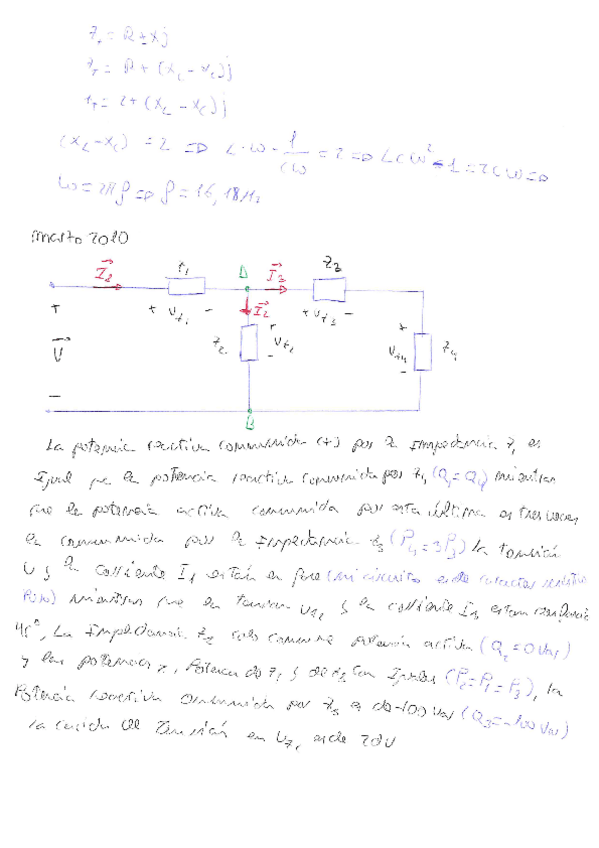 Z_T = R ± Xj
Z_T = R + (X_L - X_C)j
Z_T = 2 + (X_L - X_C)j
(X_L - X_C) = 2 => L·ω - 1/(Cω) = 2 => LCω² - 1 = 2Cω =>
ω = 2πf => f = 16,18 Hz
marzo 2010
I₁ Z₁ A I₃ Z₃
+ V_Z₁ - I₂ + V_Z₃ -
+ V - Z₂ + V_Z₂ - + V_Z₄ - Z₄
B
La potencia reactiva consumida (+) por la Impedancia Z₁ es
Igual que la potencia reactiva consumida por Z₄ (Q₁ = Q₄) mientras
que la potencia activa consumida por esta última es tres veces
la consumida por la Impedancia Z₃ (P₄ = 3P₃) la tensión
U y la corriente I₁ están en fase (mi circuito es de carácter resistivo
mientras que la tensión y la corriente I₁ están
45°, La Impedancia Z₂ solo consume potencia activa (Q₂ = 0 Var)
y las potencias Potencia de Z₁ y de Z₃ son Iguales (P₂ = P₁ = P₃), la
Potencia reactiva consumida por Z₃ es de -100 Var (Q₃ = -100 Var)
la caída de Tensión en U_Z₁ es de 20V